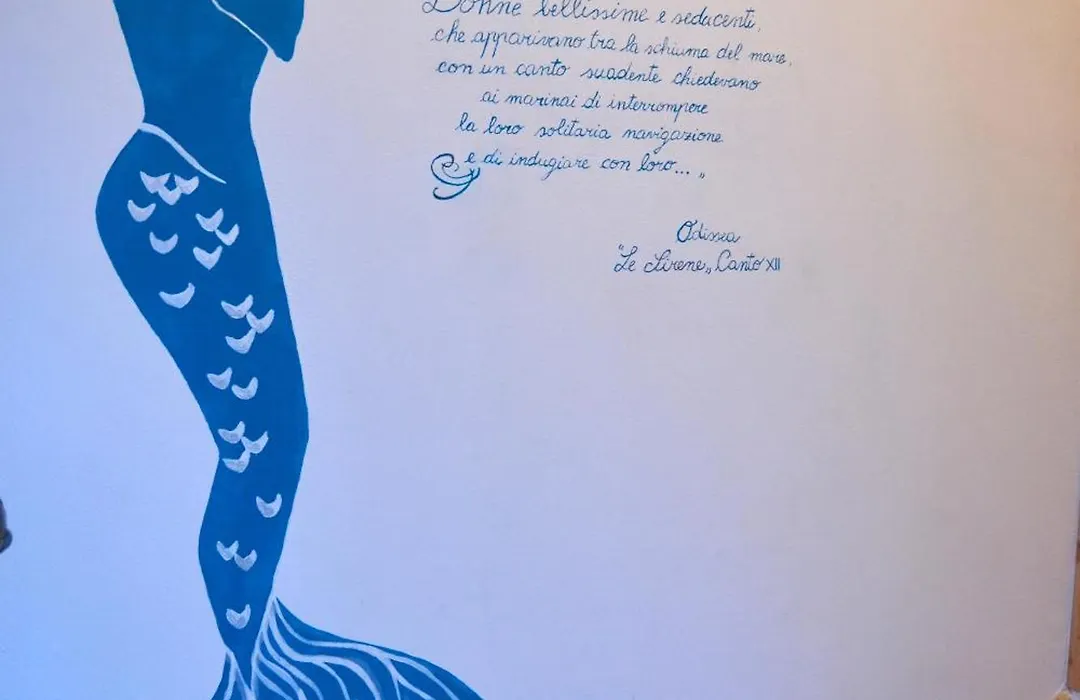 Donne bellissime e seducenti,
che apparivano tra la schiuma del mare,
con un canto suadente chiedevano
ai marinai di interrompere
la loro solitaria navigazione
e di indugiare con loro... „
Odissea
"Le Sirene„ Canto XII